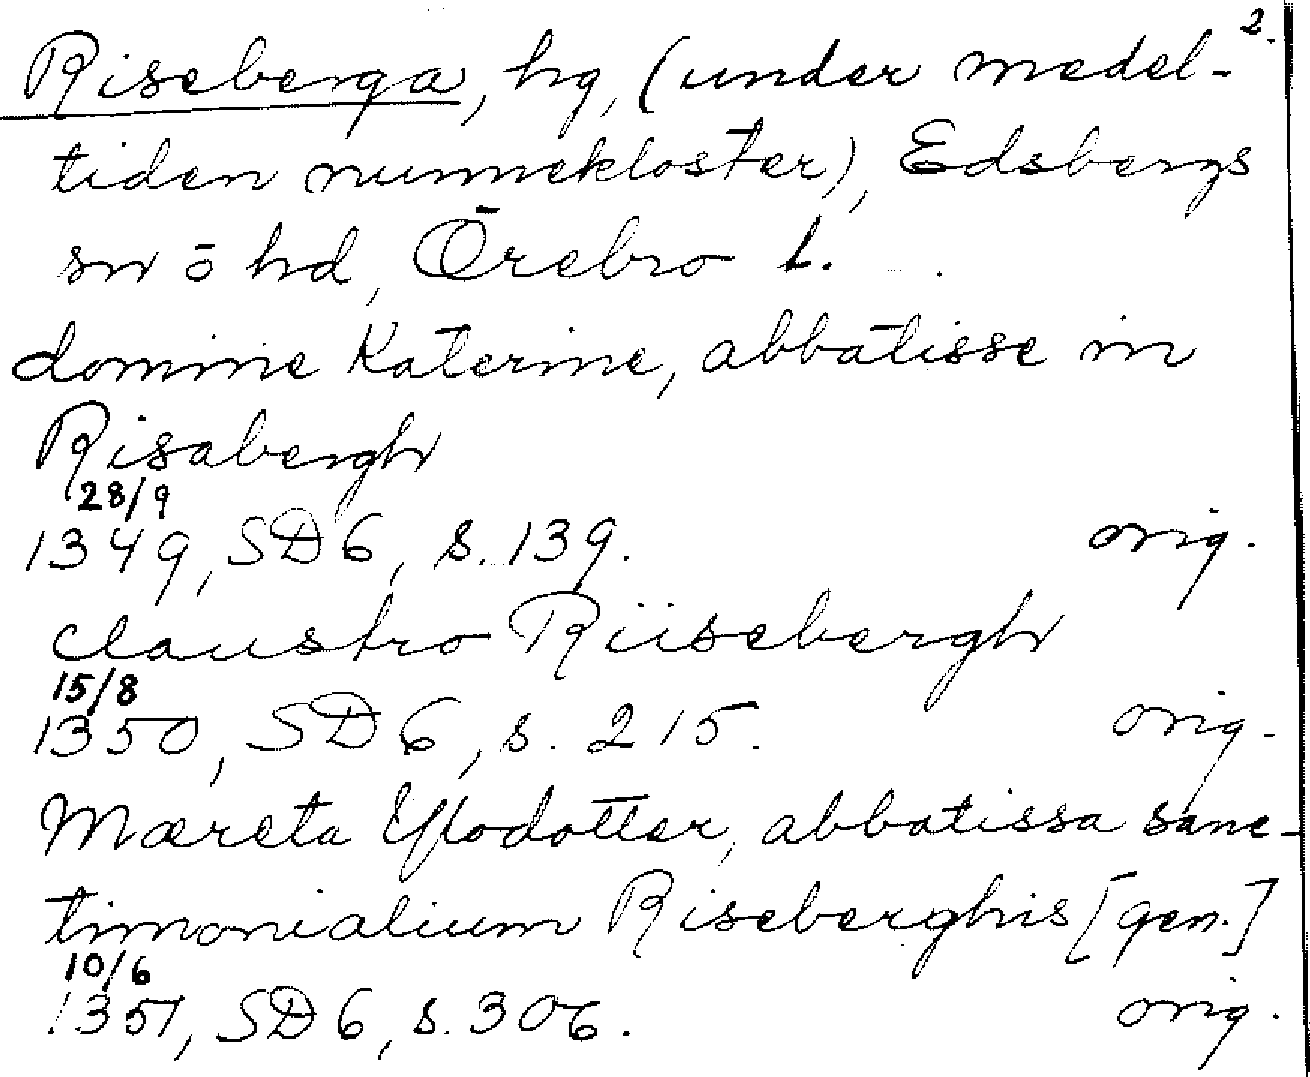 2.
Riseberga, hg, (under medel-
tiden nunnekloster), Edsbergs
sn ō hd, Örebro l.
domine Katerine, abbatisse in
Risabergh
28/9
1349, SD 6, s. 139. orig.
claustro Riisebergh
15/8
1350, SD 6, s. 215. orig.
Mæreta Yflodotter, abbatissa sanc-
timonialium Riseberghis [gen.]
10/6
1351, SD 6, s. 306. orig.